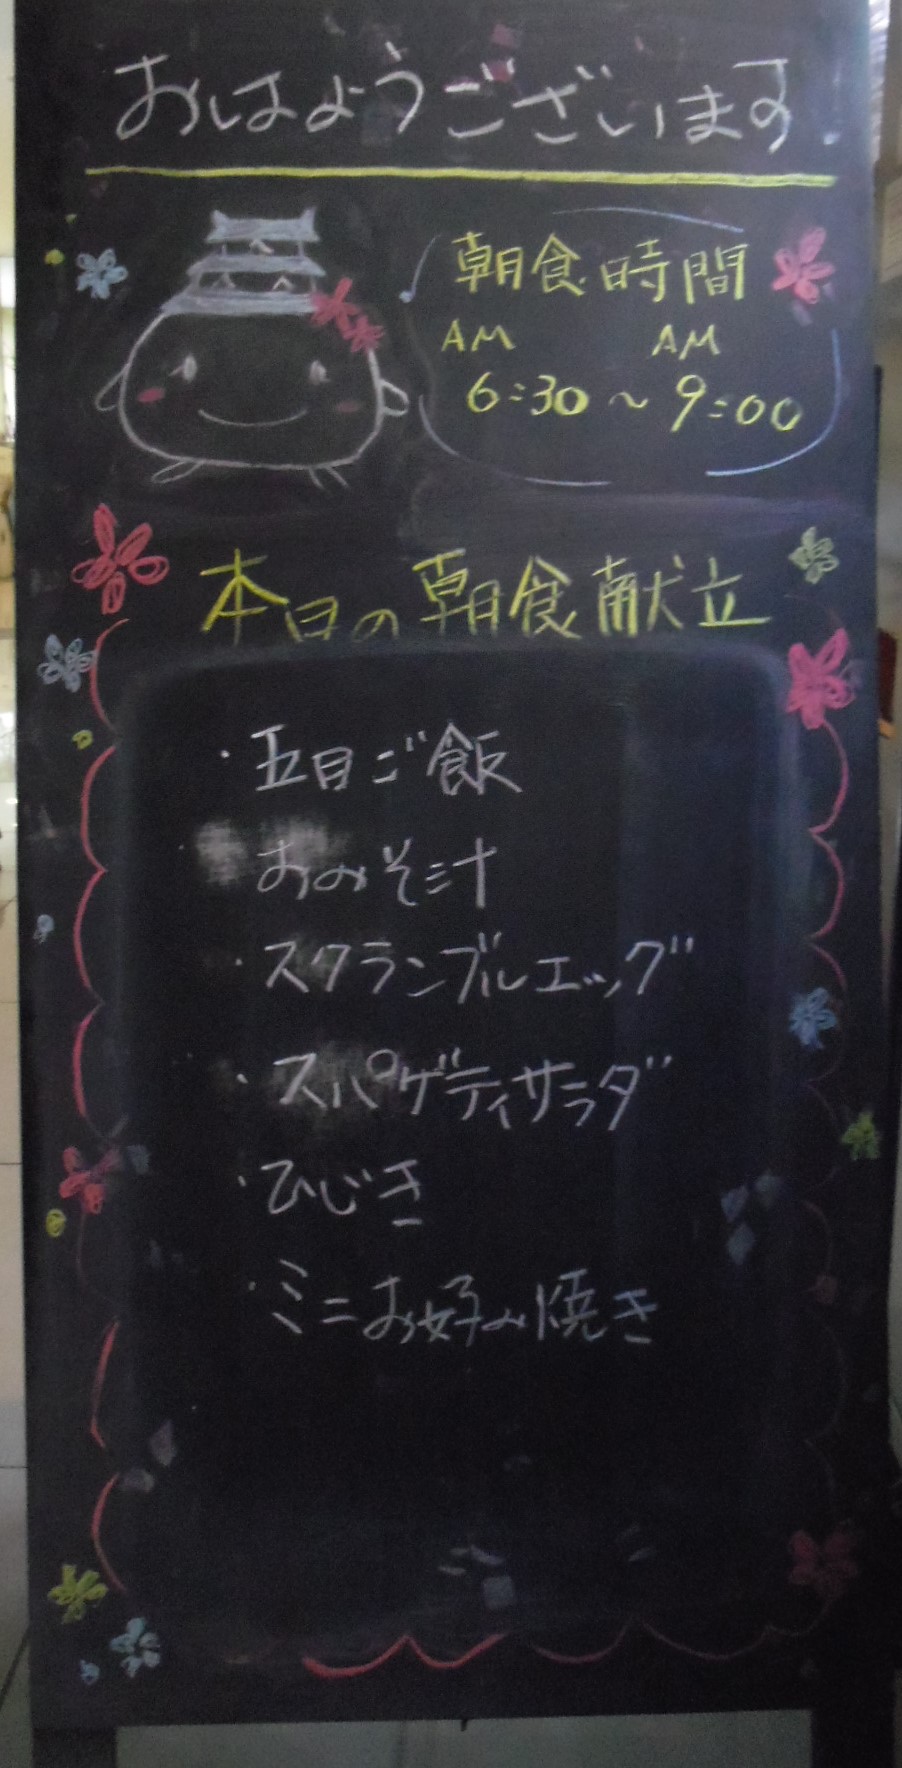 おはようございます
朝食時間
AM AM
6:30～9:00
本日の朝食献立
・五目ご飯
・おみそ汁
・スクランブルエッグ
・スパゲティサラダ
・ひじき
・ミニお好み焼き